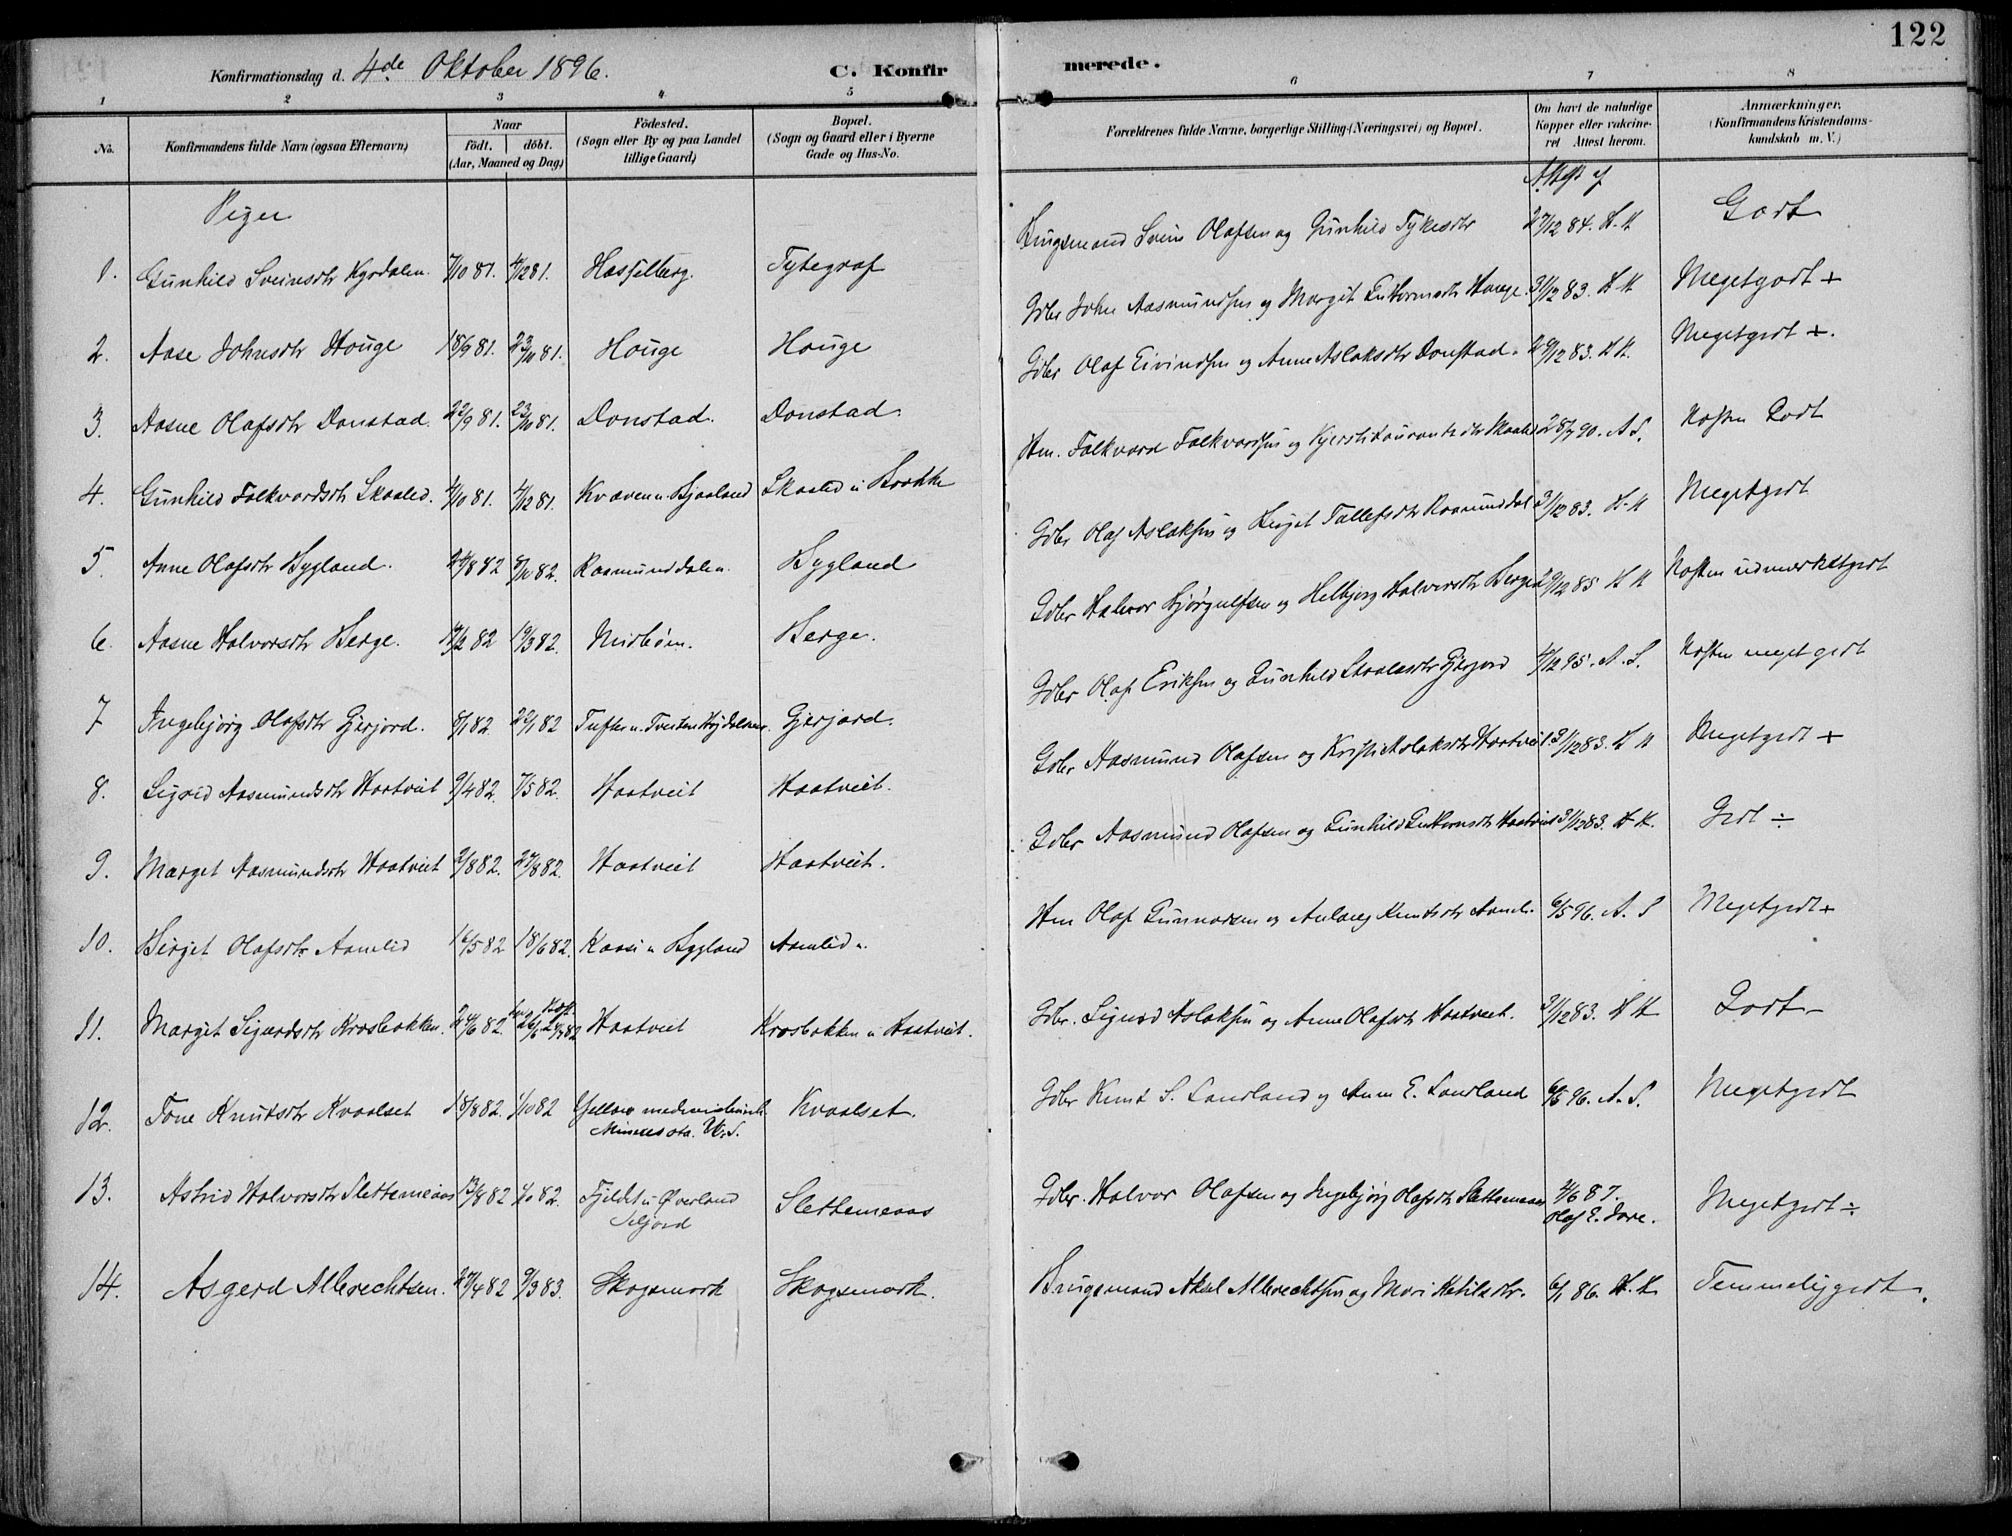 122
Konfirmationsdag d. 4de Oktober 1896.
C. Konfirmerede.
1 2 3 4 5 6 7 8
No.
Konfirmandens fulde Navn (ogsaa Efternavn)
Naar
födt. döbt.
(Aar, Maaned og Dag)
Födested.
(Sogn eller By og paa Landet tillige Gaard)
Bopæl.
(Sogn og Gaard eller i Byerne Gade og Hus-No.
Forældrenes fulde Navne, borgerlige Stilling (Næringsvei) og Bopæl.
Om havt de naturlige Kopper eller vakcineret Attest herom.
Anmærkninger.
(Konfirmandens Kristendomskundskab m. V.)
Piger
Attest af
1. Gunhild Sveinsdtr 7/10 81. 4/12 81. Hasselberg. Tytegraf Brugsmand Svein Olafsen og Gunhild Tykesdtr 27/12 84. H. K Godt
2. Aase Johnsdtr Houge 18/9 81. 23/10 81. Houge Houge Gdbr John Aasmundsen og Margit Guttormsdtr Houge. 31/12 83. H K Megetgodt +
3. Aasne Olafsdtr Donstad. 22/9 81. 23/10 81. Donstad. Donstad. Gdbr Olaf Eivindsen og Anne Aslaksdtr Donstad. 29/12 83. H K. Megetgodt +.
4. Gunhild Folkvardsdtr Skaalid. 4/10 81. 4/12 81. Kvæven u. Bjaaland Skaalid u Hm. Folkvard Folkvardsen og Kjersti Skaalid 28/7 90. A. S. Næsten Godt
5. Anne Olafsdtr Bygland. 24/8 82 8/10 82. Raamunddalen. Bygland Gdbr Olaf Aslaksen og Birgit Tallefsdtr Raamunddal 31/12 83. H. K Megetgodt
6. Aasne Halvorsdtr Berge. 19/3 82. Midbøen. Berge. Gdbr Halvor Bjørgulfsen og Helbjørg Halvorsdtr Berge 29/12 85 H K Næsten udmærketgodt
7 Ingebjørg Olafsdtr Gjerjord. 8/1 82. 29/1 82 Gjerjord. Gdbr Olaf Eriksen og Gunhild Gjerjord 4/12 95. A. S. Næsten meget godt
8. Sigrid Aasmundsdtr Haatveit 9/4 82. 7/5 82. Haatveit Haatveit. Gdbr Aasmund Olafsen og Kristi Aslaksdtr Haatveit 31/12 83. H K Megetgodt +
9. Marget Aasmundsdtr Haatveit 2/8 82. 27/8 82. Haatveit Haatveit. Gdbr Aasmund Olafsen og Gunhild Guttormsdtr Haatveit 31/12 83. H K. Godt ÷
10. Birget Olafsdtr Aamlid 16/5 82 18/6 82. Kaasi u Bygland Aamlid u. Hm Olaf Gunnarsen og Aslaug Knutsdtr Aamli. 6/5 96. A. S Megetgodt +
11. Marget Sigurdsdtr Krosbakken. 24/6 82. Haatveit Krosbakken u Haatveit. Gdbr. Sigurd Aslaksen og Anne Olafsdtr Haatveit. 31/12 83. H K Godt
12. Tone Knutsdtr Kvaalset 18/8 82. 1/10 82 Yellow medecine Minnesota. U. S. Kvaalset. Gdbr Knut S. Lauvland og Anne E. Lauvland 6/5 96. A. S. Megetgodt
13. Astrid Halvorsdtr Slettemeaas 13/8 82 1/10 82. Fjeldet u Øverland Seljord Slettemeaas Gdbr. Halvor Olafsen og Ingebjørg Olafsdtr Slettemeaas 4/6 87. Olaf E. Jore. Megetgodt ÷
14. Asgerd Albrechtsen. 27/4 82 9/3 83. Skogsmork Skogsmork. Brugsmand Aksel Albrechtsen og Mari Ketilsdtr. 6/1 86. H. K Temmeliggodt.